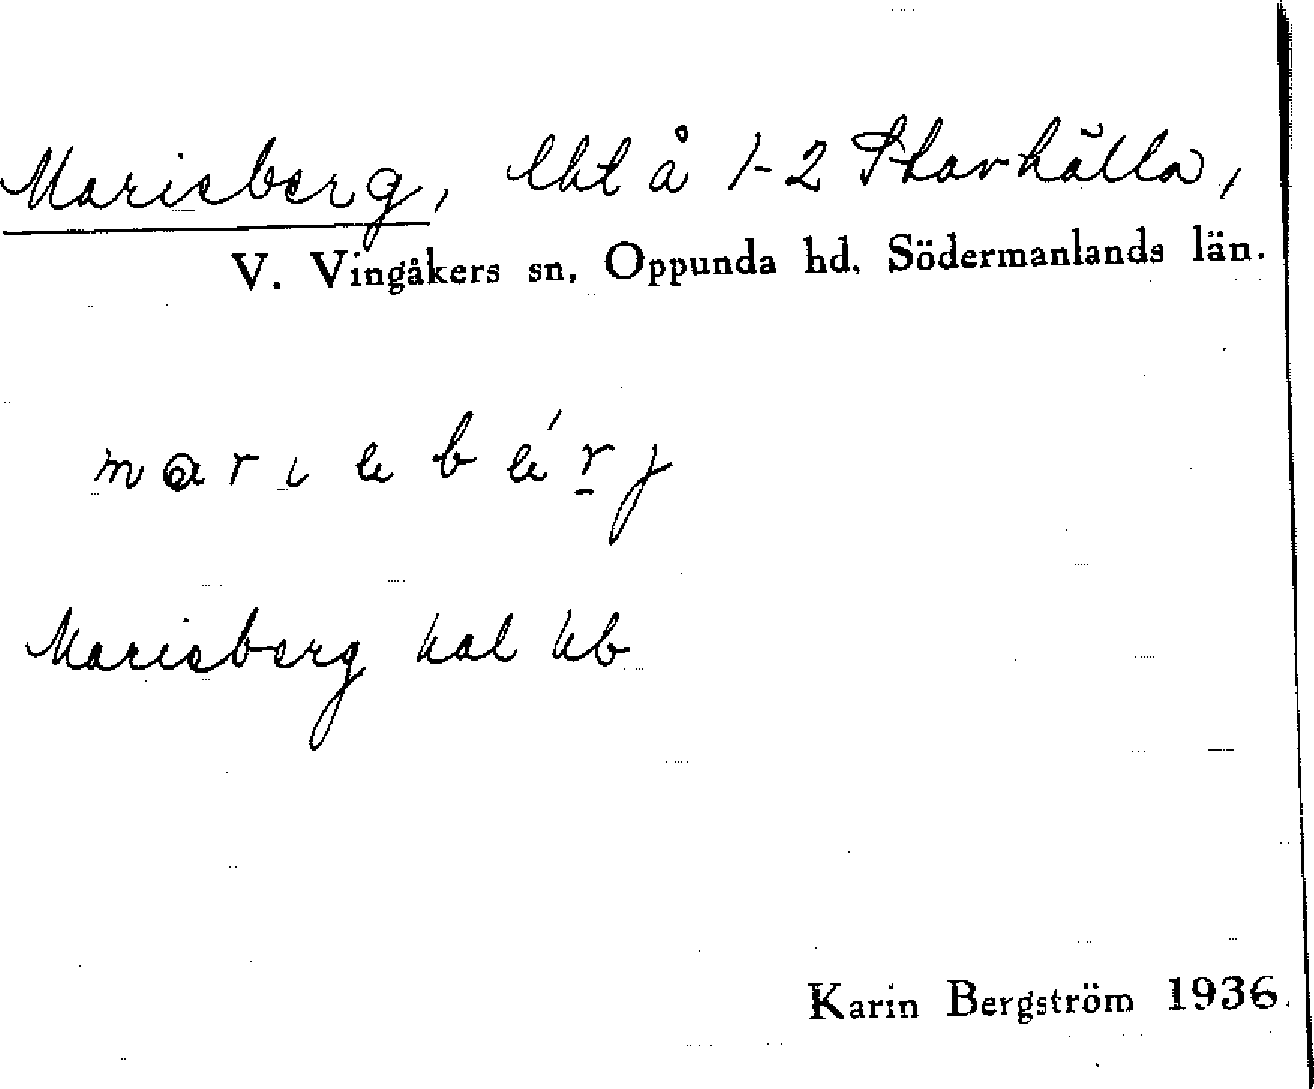 Marieberg, lht å 1-2 Skarhälla,
V. Vingåkers sn. Oppunda hd. Södermanlands län.
Marieberg kal kb
Karin Bergström 1936.